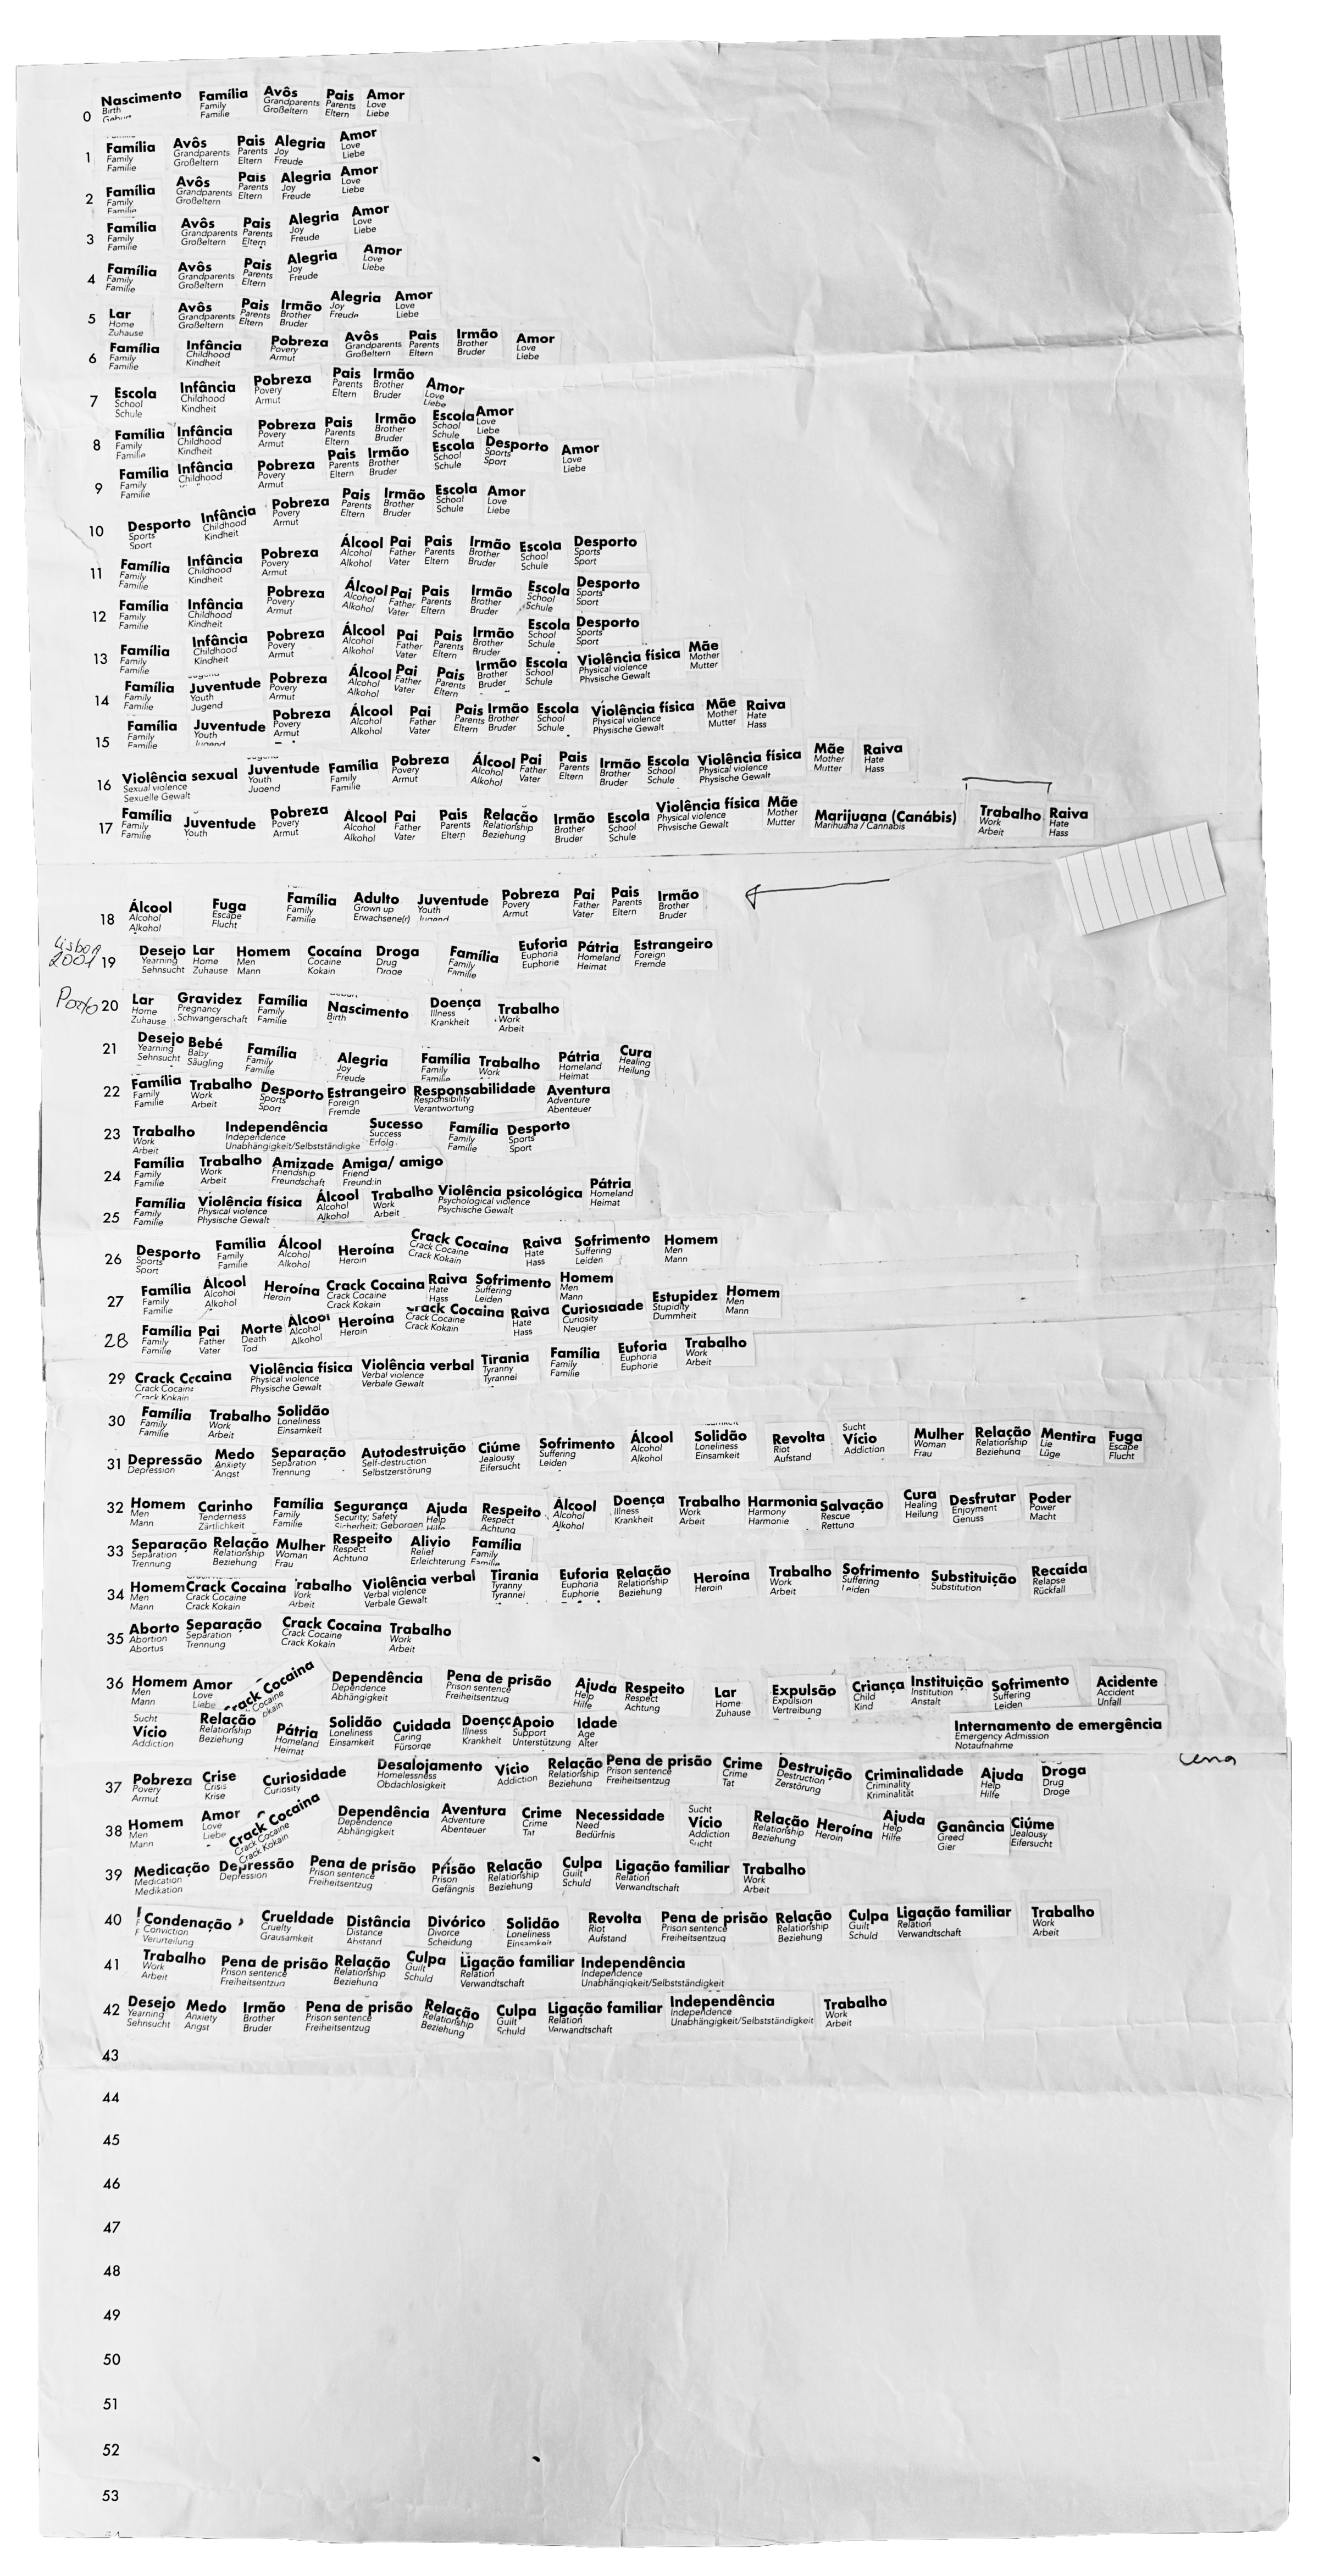 0 Nascimento Família Avôs Pais Amor
Birth Family Grandparents Parents Love
Familie Großeltern Eltern Liebe
1 Família Avôs Pais Alegria Amor
Family Grandparents Parents Joy Love
Familie Großeltern Eltern Freude Liebe
2 Família Avôs Pais Alegria Amor
Family Grandparents Parents Joy Love
Familie Großeltern Eltern Freude Liebe
3 Família Avôs Pais Alegria Amor
Family Grandparents Parents Joy Love
Familie Großeltern Eltern Freude Liebe
4 Família Avôs Pais Alegria Amor
Family Grandparents Parents Joy Love
Familie Großeltern Eltern Freude Liebe
5 Lar Avôs Pais Irmão Alegria Amor
Home Grandparents Parents Brother Joy Love
Zuhause Großeltern Eltern Bruder Freude Liebe
6 Família Infância Pobreza Avôs Pais Irmão Amor
Family Childhood Povery Grandparents Parents Brother Love
Familie Kindheit Armut Großeltern Eltern Bruder Liebe
7 Escola Infância Pobreza Pais Irmão Amor
School Childhood Povery Parents Brother Love
Schule Kindheit Armut Eltern Bruder Liebe
8 Família Infância Pobreza Pais Irmão Escola Amor
Family Childhood Povery Parents Brother School Love
Familie Kindheit Armut Eltern Bruder Schule Liebe
9 Família Infância Pobreza Pais Irmão Escola Desporto Amor
Family Childhood Povery Parents Brother School Sports Love
Familie Armut Eltern Bruder Schule Sport Liebe
10 Desporto Infância Pobreza Pais Irmão Escola Amor
Sports Childhood Povery Parents Brother School Love
Sport Kindheit Armut Eltern Bruder Schule Liebe
11 Família Infância Pobreza Álcool Pai Pais Irmão Escola Desporto
Family Childhood Povery Alcohol Father Parents Brother School Sports
Familie Kindheit Armut Alkohol Vater Eltern Bruder Schule Sport
12 Família Infância Pobreza Álcool Pai Pais Irmão Escola Desporto
Family Childhood Povery Alcohol Father Parents Brother School Sports
Familie Kindheit Armut Alkohol Vater Eltern Bruder Schule Sport
13 Família Infância Pobreza Álcool Pai Pais Irmão Escola Desporto
Family Childhood Povery Alcohol Father Parents Brother School Sports
Familie Kindheit Armut Alkohol Vater Eltern Bruder Schule Sport
14 Família Juventude Pobreza Álcool Pai Pais Irmão Escola Violência física Mãe
Family Youth Povery Alcohol Father Parents Brother School Physical violence Mother
Familie Jugend Armut Alkohol Vater Eltern Bruder Schule Physische Gewalt Mutter
15 Família Juventude Pobreza Álcool Pai Pais Irmão Escola Violência física Mãe Raiva
Family Youth Povery Alcohol Father Parents Brother School Physical violence Mother Hate
Familie Jugend Armut Alkohol Vater Eltern Bruder Schule Physische Gewalt Mutter Hass
16 Violência sexual Juventude Família Pobreza Álcool Pai Pais Irmão Escola Violência física Mãe Raiva
Sexual violence Youth Family Povery Alcohol Father Parents Brother School Physical violence Mother Hate
Sexuelle Gewalt Jugend Familie Armut Alkohol Vater Eltern Bruder Schule Physische Gewalt Mutter Hass
17 Família Juventude Pobreza Álcool Pai Pais Relação Irmão Escola Violência física Mãe Marijuana (Canábis) Trabalho Raiva
Family Youth Povery Alcohol Father Parents Relationship Brother School Physical violence Mother Marihuana / Cannabis Work Hate
Familie Armut Alkohol Vater Eltern Beziehung Bruder Schule Physische Gewalt Mutter Arbeit Hass
18 Álcool Fuga Família Adulto Juventude Pobreza Pai Pais Irmão
Alcohol Escape Family Grown up Youth Povery Father Parents Brother
Alkohol Flucht Familie Erwachsene(r) Jugend Armut Vater Eltern Bruder
Lisboa
2001 19 Desejo Lar Homem Cocaína Droga Família Euforia Pátria Estrangeiro
Yearning Home Men Cocaine Drug Family Euphoria Homeland Foreign
Sehnsucht Zuhause Mann Kokain Droge Familie Euphorie Heimat Fremde
Porto 20 Lar Gravidez Família Nascimento Doença Trabalho
Home Pregnancy Family Birth Illness Work
Zuhause Schwangerschaft Familie Krankheit Arbeit
21 Desejo Bebé Família Alegria Família Trabalho Pátria Cura
Yearning Baby Family Joy Family Work Homeland Healing
Sehnsucht Säugling Familie Freude Familie Heimat Heilung
22 Família Trabalho Desporto Estrangeiro Responsabilidade Aventura
Family Work Sports Foreign Responsibility Adventure
Familie Arbeit Sport Fremde Verantwortung Abenteuer
23 Trabalho Independência Sucesso Família Desporto
Work Independence Success Family Sports
Arbeit Unabhängigkeit/Selbstständigke Erfolg Familie Sport
24 Família Trabalho Amizade Amiga/ amigo
Family Work Friendship Friend
Familie Arbeit Freundschaft Freund:in
25 Família Violência física Álcool Trabalho Violência psicológica Pátria
Family Physical violence Alcohol Work Psychological violence Homeland
Familie Physische Gewalt Alkohol Arbeit Psychische Gewalt Heimat
26 Desporto Família Álcool Heroína Crack Cocaina Raiva Sofrimento Homem
Sports Family Alcohol Heroin Crack Cocaine Hate Suffering Men
Sport Familie Alkohol Crack Kokain Hass Leiden Mann
27 Família Álcool Heroína Crack Cocaina Raiva Sofrimento Homem Estupidez Homem
Family Alcohol Heroin Crack Cocaine Hate Suffering Men Stupidity Men
Familie Alkohol Crack Kokain Hass Leiden Mann Dummheit Mann
28 Família Pai Morte Álcool Heroína Crack Cocaina Raiva Curiosidade
Family Father Death Alcohol Heroin Crack Cocaine Hate Curiosity
Familie Vater Tod Alkohol Crack Kokain Hass Neugier
29 Crack Cocaina Violência física Violência verbal Tirania Família Euforia Trabalho
Crack Cocaine Physical violence Verbal violence Tyranny Family Euphoria Work
Crack Kokain Physische Gewalt Verbale Gewalt Tyrannei Familie Euphorie Arbeit
30 Família Trabalho Solidão
Family Work Loneliness
Familie Arbeit Einsamkeit
31 Depressão Medo Separação Autodestruição Ciúme Sofrimento Álcool Solidão Revolta Vício Mulher Relação Mentira Fuga
Depression Anxiety Separation Self-destruction Jealousy Suffering Alcohol Loneliness Riot Addiction Woman Relationship Lie Escape
Angst Trennung Selbstzerstörung Eifersucht Leiden Alkohol Einsamkeit Aufstand Sucht Frau Beziehung Lüge Flucht
32 Homem Carinho Família Segurança Ajuda Respeito Álcool Doença Trabalho Harmonia Salvação Cura Desfrutar Poder
Men Tenderness Family Security; Safety Help Respect Alcohol Illness Work Harmony Rescue Healing Enjoyment Power
Mann Zärtlichkeit Familie Sicherheit; Geborgen Hilfe Achtung Alkohol Krankheit Arbeit Harmonie Rettung Heilung Genuss Macht
33 Separação Relação Mulher Respeito Alivio Família
Separation Relationship Woman Respect Relief Family
Trennung Beziehung Frau Achtung Erleichterung Familie
34 Homem Crack Cocaina Trabalho Violência verbal Tirania Euforia Relação Heroína Trabalho Sofrimento Substituição Recaída
Men Crack Cocaine Work Verbal violence Tyranny Euphoria Relationship Heroin Work Suffering Substitution Relapse
Mann Crack Kokain Arbeit Verbale Gewalt Tyrannei Euphorie Beziehung Arbeit Leiden Rückfall
35 Aborto Separação Crack Cocaina Trabalho
Abortion Separation Crack Cocaine Work
Abortus Trennung Crack Kokain Arbeit
36 Homem Amor Crack Cocaina Dependência Pena de prisão Ajuda Respeito Lar Expulsão Criança Instituição Sofrimento Acidente
Men Love Cocaine Dependence Prison sentence Help Respect Home Expulsion Child Institution Suffering Accident
Mann Liebe Abhängigkeit Freiheitsentzug Hilfe Achtung Zuhause Vertreibung Kind Anstalt Leiden Unfall
Sucht
Vício Relação Pátria Solidão Cuidada Doença Apoio Idade Internamento de emergência
Addiction Relationship Homeland Loneliness Caring Illness Support Age Emergency Admission
Beziehung Heimat Einsamkeit Fürsorge Krankheit Unterstützung Alter Notaufnahme
37 Pobreza Crise Curiosidade Desalojamento Vício Relação Pena de prisão Crime Destruição Criminalidade Ajuda Droga
Povery Crisis Curiosity Homelessness Addiction Relationship Prison sentence Crime Destruction Criminality Help Drug
Armut Krise Obdachlosigkeit Beziehung Freiheitsentzug Tat Zerstörung Kriminalität Hilfe Droge
38 Homem Amor Crack Cocaina Dependência Aventura Crime Necessidade Vício Relação Heroína Ajuda Ganância Ciúme
Men Love Crack Cocaine Dependence Adventure Crime Need Addiction Relationship Heroin Help Greed Jealousy
Mann Liebe Crack Kokain Abhängigkeit Abenteuer Tat Bedürfnis Sucht Beziehung Hilfe Gier Eifersucht
39 Medicação Depressão Pena de prisão Prisão Relação Culpa Ligação familiar Trabalho
Medication Depression Prison sentence Prison Relationship Guilt Relation Work
Medikation Freiheitsentzug Gefängnis Beziehung Schuld Verwandtschaft Arbeit
40 Condenação Crueldade Distância Divórico Solidão Revolta Pena de prisão Relação Culpa Ligação familiar Trabalho
Conviction Cruelty Distance Divorce Loneliness Riot Prison sentence Relationship Guilt Relation Work
Verurteilung Grausamkeit Abstand Scheidung Einsamkeit Aufstand Freiheitsentzug Beziehung Schuld Verwandtschaft Arbeit
41 Trabalho Pena de prisão Relação Culpa Ligação familiar Independência
Work Prison sentence Relationship Guilt Relation Independence
Arbeit Freiheitsentzug Beziehung Schuld Verwandtschaft Unabhängigkeit/Selbstständigkeit
42 Desejo Medo Irmão Pena de prisão Relação Culpa Ligação familiar Independência Trabalho
Yearning Anxiety Brother Prison sentence Relationship Guilt Relation Independence Work
Sehnsucht Angst Bruder Freiheitsentzug Beziehung Schuld Verwandtschaft Unabhängigkeit/Selbstständigkeit Arbeit
43
44
45
46
47
48
49
50
51
52
53